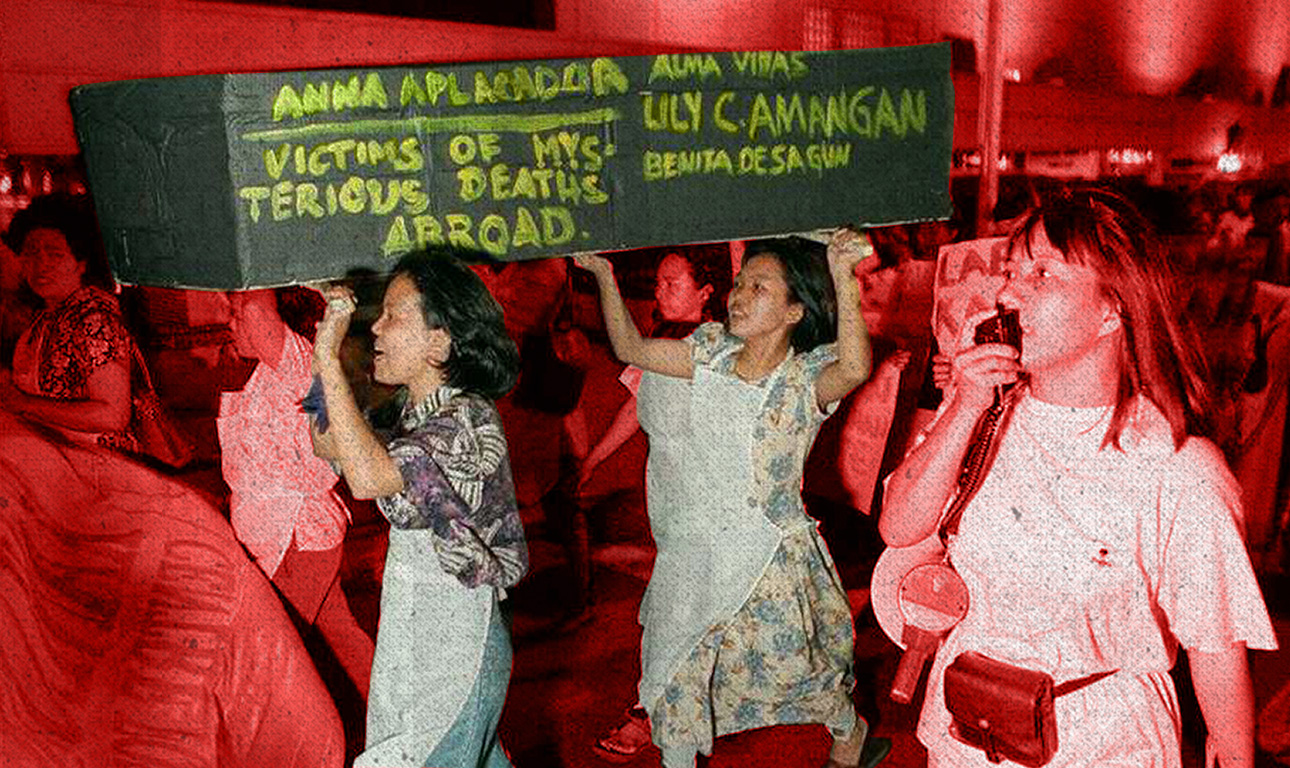 ANNA APLAKADOR
VICTIMS OF MYS-
TERIOUS DEATHS
ABROAD.
ALMA VIÑAS
LILY C. AMANGAN
BENITA DESAGUN